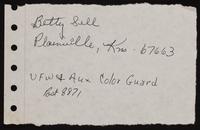 Betty Sell
Plainville, Kns. 67663
VFW & Aux Color Guard
Post 8971